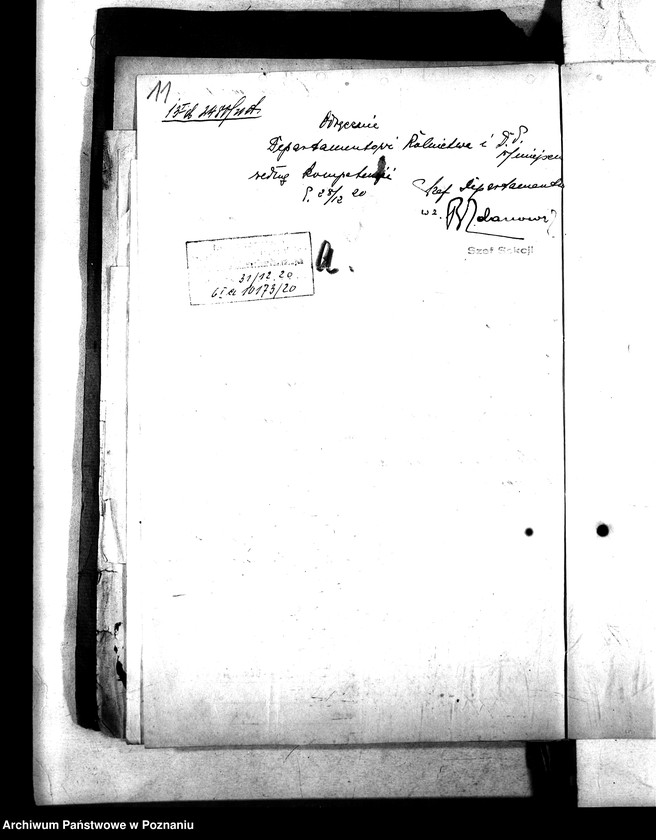 11
Odręcznie
Departamentowi Rolnictwa i D. P.
w miejscu
według kompetencji
P. 28/12 20
Szef Departamentu
wz.
Szef Sekcji
31/12. 20
10173/20
a.
Archiwum Państwowe w Poznaniu